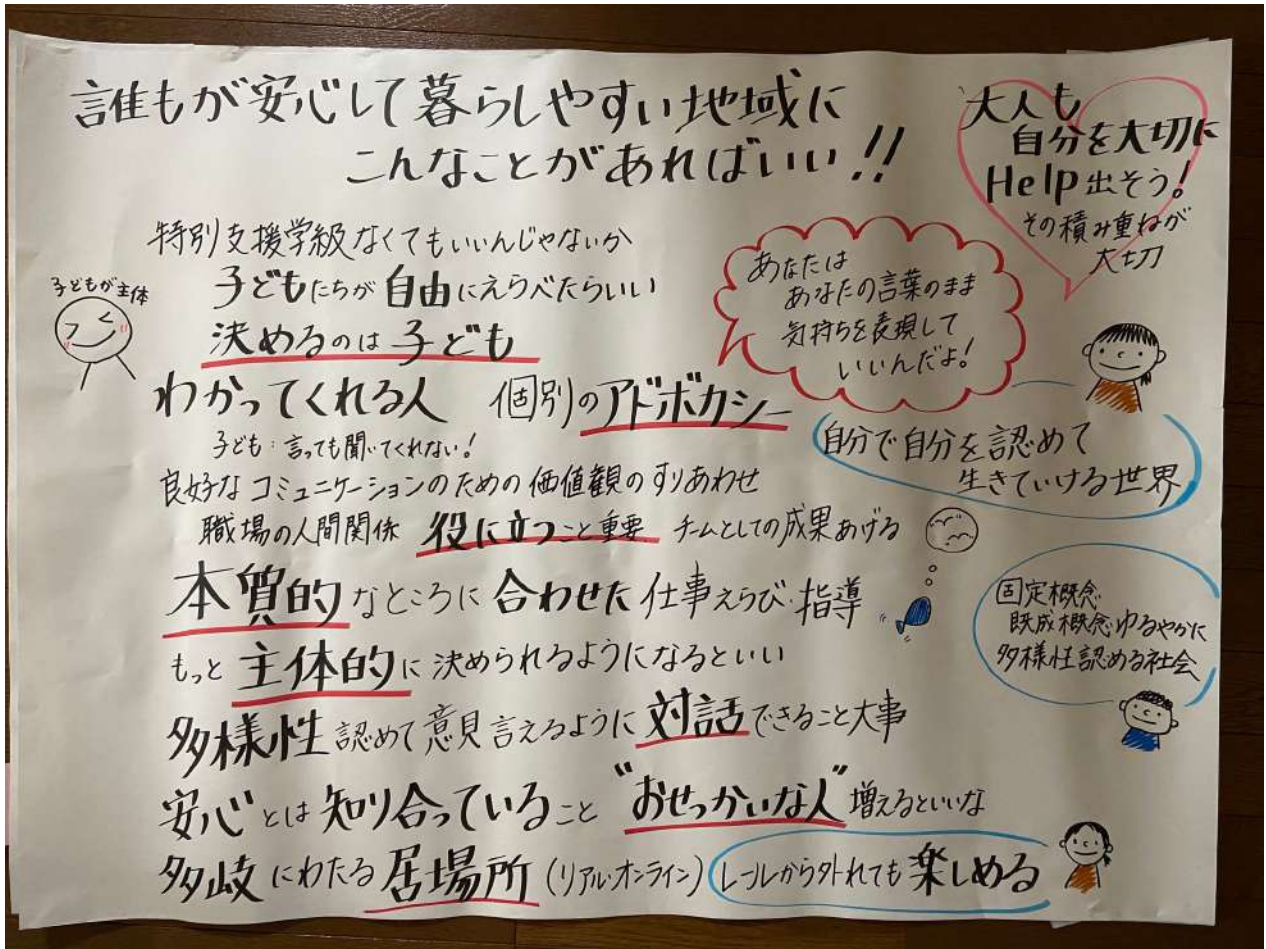 誰もが安心して暮らしやすい地域に
こんなことがあればいい!!
大人も
自分を大切に
Help出そう!
その積み重ねが
大切
特別支援学級なくてもいいんじゃないか
子どもが主体
子どもたちが自由にえらべたらいい
決めるのは子ども
あなたは
あなたの言葉のまま
気持ちを表現して
いいんだよ!
わかってくれる人 個別のアドボカシー
子ども:言っても聞いてくれない!
自分で自分を認めて
生きていける世界
良好なコミュニケーションのための価値観のすりあわせ
職場の人間関係 役に立つこと重要 チームとしての成果あげる
本質的なところに合わせた仕事えらび・指導
固定概念
既成概念ゆるやかに
多様性認める社会
もっと主体的に決められるようになるといい
多様性認めて意見言えるように対話できること大事
安心とは知り合っていること "おせっかいな人"増えるといいな
多岐にわたる居場所(リアル・オンライン) レールから外れても楽しめる